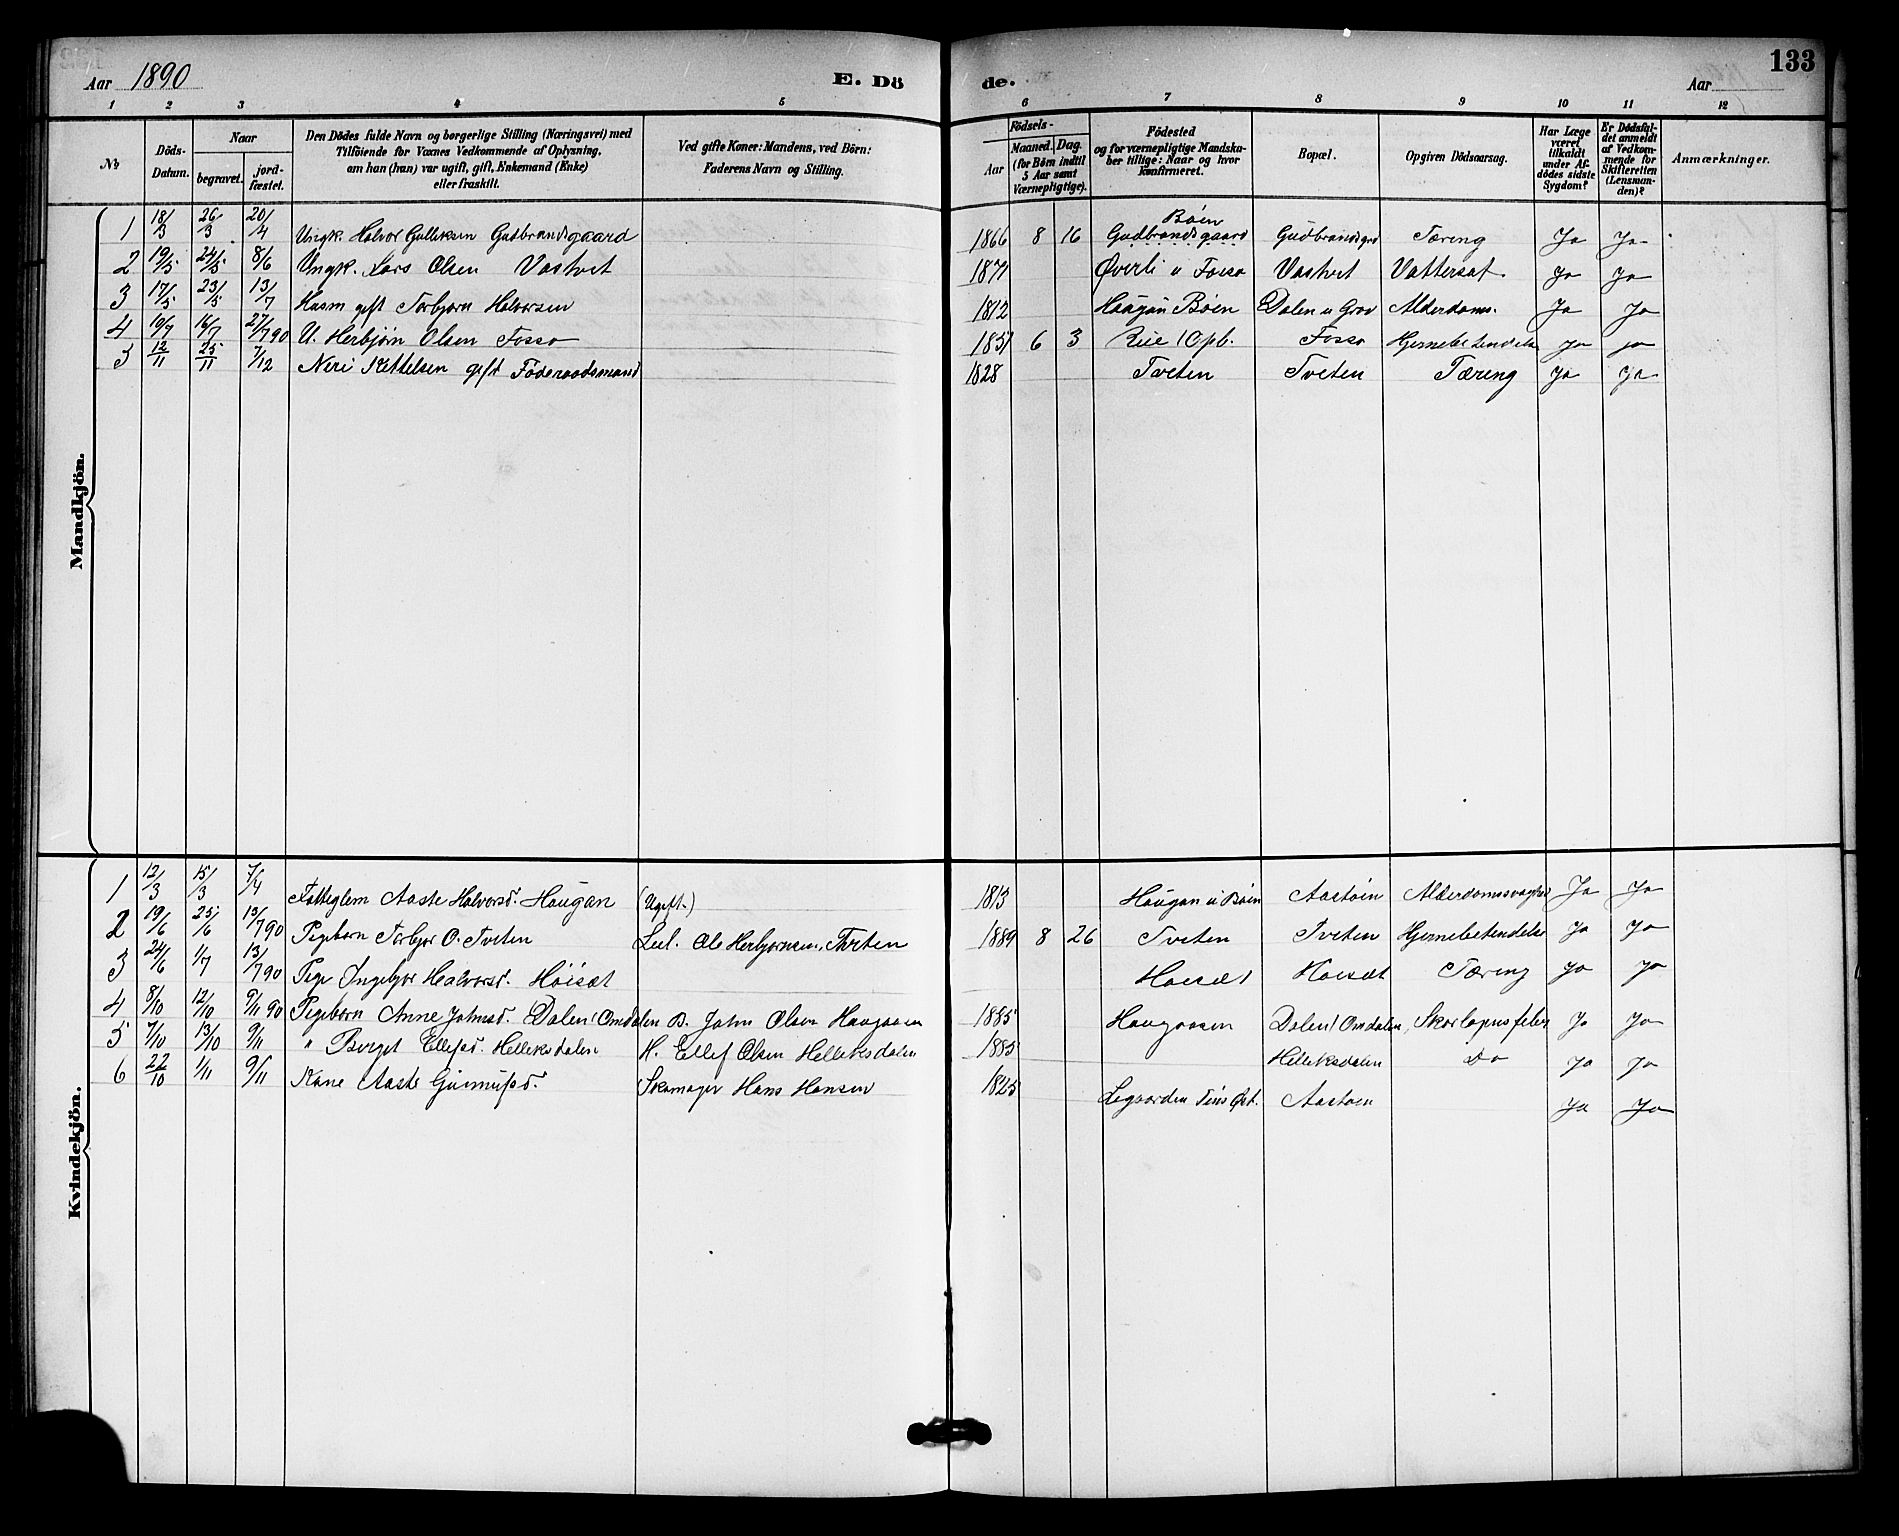 Aar 1890 E. Dö de. Aar 133
1 2 3 4 5 6 7 8 9 10 11 12
No. Döds-Datum. Naar begravet. jord-fæstet. Den Dödes fulde Navn og borgerlige Stilling (Næringsvei) med Tilföiende for Voxnes Vedkommende af Oplysning, om han (hun) var ugift, gift, Enkemand (Enke) eller fraskilt. Ved gifte Koner: Mandens, ved Börn: Faderens Navn og Stilling. Födsels- Aar Maaned. Dag. (for Börn indtil 5 Aar samt Værnepligtige). Födested og for værnepligtige Mandskaber tillige: Naar og hvor konfirmeret. Bopæl. Opgiven Dödsaarsag. Har Læge været tilkaldt under Afdödes sidste Sygdom? Er Dödsfaldet anmeldt af Vedkommende for Skifteretten (Lensmanden)? Anmærkninger.
Mandkjön.
1 18/3 26/3 20/4 Ungk. Halvor Gulleksen Gudbrandsgaard 1866 8 16 Böen Gudbrandsgaard Gudbrandsgrd Tæring Ja Ja
2 19/5 24/5 8/6 Ungk. Lars Olsen Vastvet 1871 Överli u Fosso Vastvet Vattersot Ja Ja
3 17/5 23/5 13/7 Husm gift Torbjorn Halvorsen 1812 Haugan Böen Dalen u Grov Alderdoms. Ja Ja
4 10/7 16/7 27/7 90 U. Herbjörn Olsen Fosso 1851 6 3 Rue Opb. Fosso Hjernebetendelse Ja Ja
5 12/11 25/11 7/12 Neri Kittelsen gift Föderaadsmand 1828 Tveten Tveten Tæring Ja Ja
Kvindekjön.
1 12/3 15/3 7/4 Fattiglem Aaste Halvorsd. Haugan (Ugift.) 1813 Haugan u Böen Aastoin Alderdomssvaghed Ja Ja
2 19/6 25/6 13/7 90 Pigebarn Torbjor O. Tveten Lul. Ole Herbjörnsen, Tveten 1889 8 26 Tveten Tveten Hjernebetendelse Ja Ja
3 24/6 1/7 13/7 90 Pige Ingebjor Halvorsd. Höisæt Hoisæt Hoisæt Tæring Ja Ja
4 8/10 12/10 9/11 90 Pigebarn Anne Johnsd. Dalen Omdalen B. John Olsen Haugaasen 1885 Haugaasen Dalen Omdalen, Skarlagensfeber Ja Ja
5 7/10 13/10 9/11 " Birgit Ellefsd. Helleksdalen H. Ellef Olsen Helleksdalen 1885 Helleksdalen Do Ja Ja
6 22/10 1/11 9/11 Kone Aaste Gunnulfsd. Skomager Hans Hansen 1825 Legaarden Tins Öst. Aastoin Ja Ja